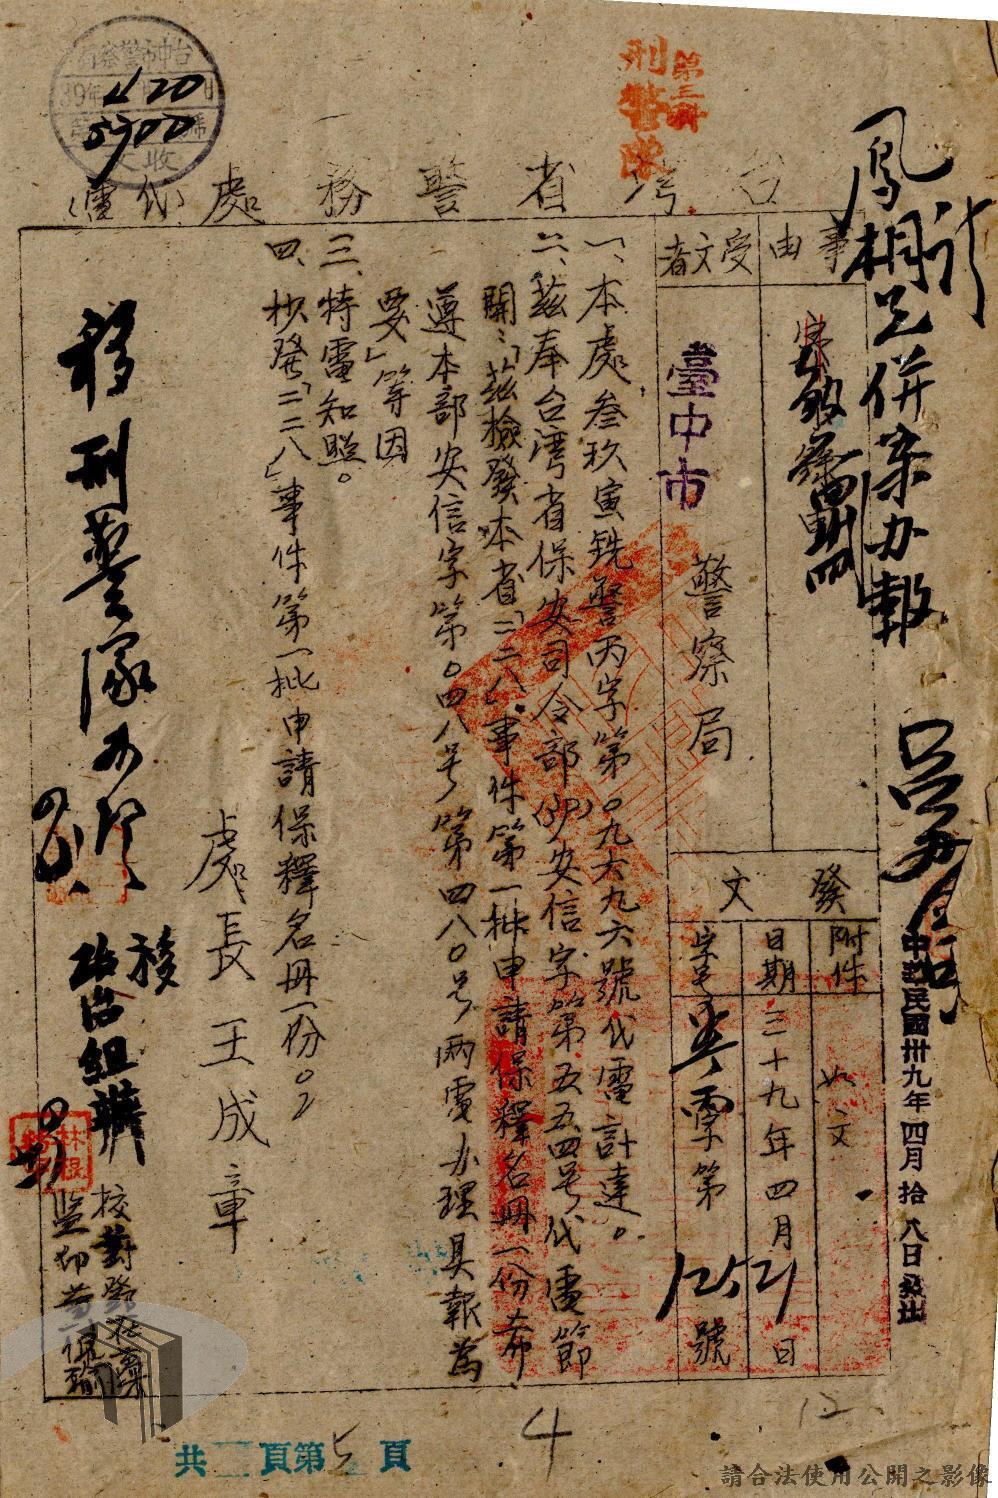 台灣省警務處(代電)
台中市警察局
39年
4 20
5900
收文
第三科
刑警隊
事由
受文者
臺中市警察局
發文
附件
如文
日期
三十九年四月 日
字號
字第 號
中華民國卅九年四月拾八日發出
一、本處叁玖寅銑警丙字第0九六九六號代電計達。
二、茲奉台灣省保安司令部(39)安信字第五五四号代電節
開:「茲檢發本省「二二八」事件第一批申請保釋名冊一份希
遵本部安信字第0四八号第四八0号兩電办理具報為
要」等因
三、特電知照。
四、抄發「二二八」事件第一批申請保釋名冊一份。
處長王成章
移刑警隊办
移
政治組
校對
監印
共二頁第5頁
4
12
請合法使用公開之影像